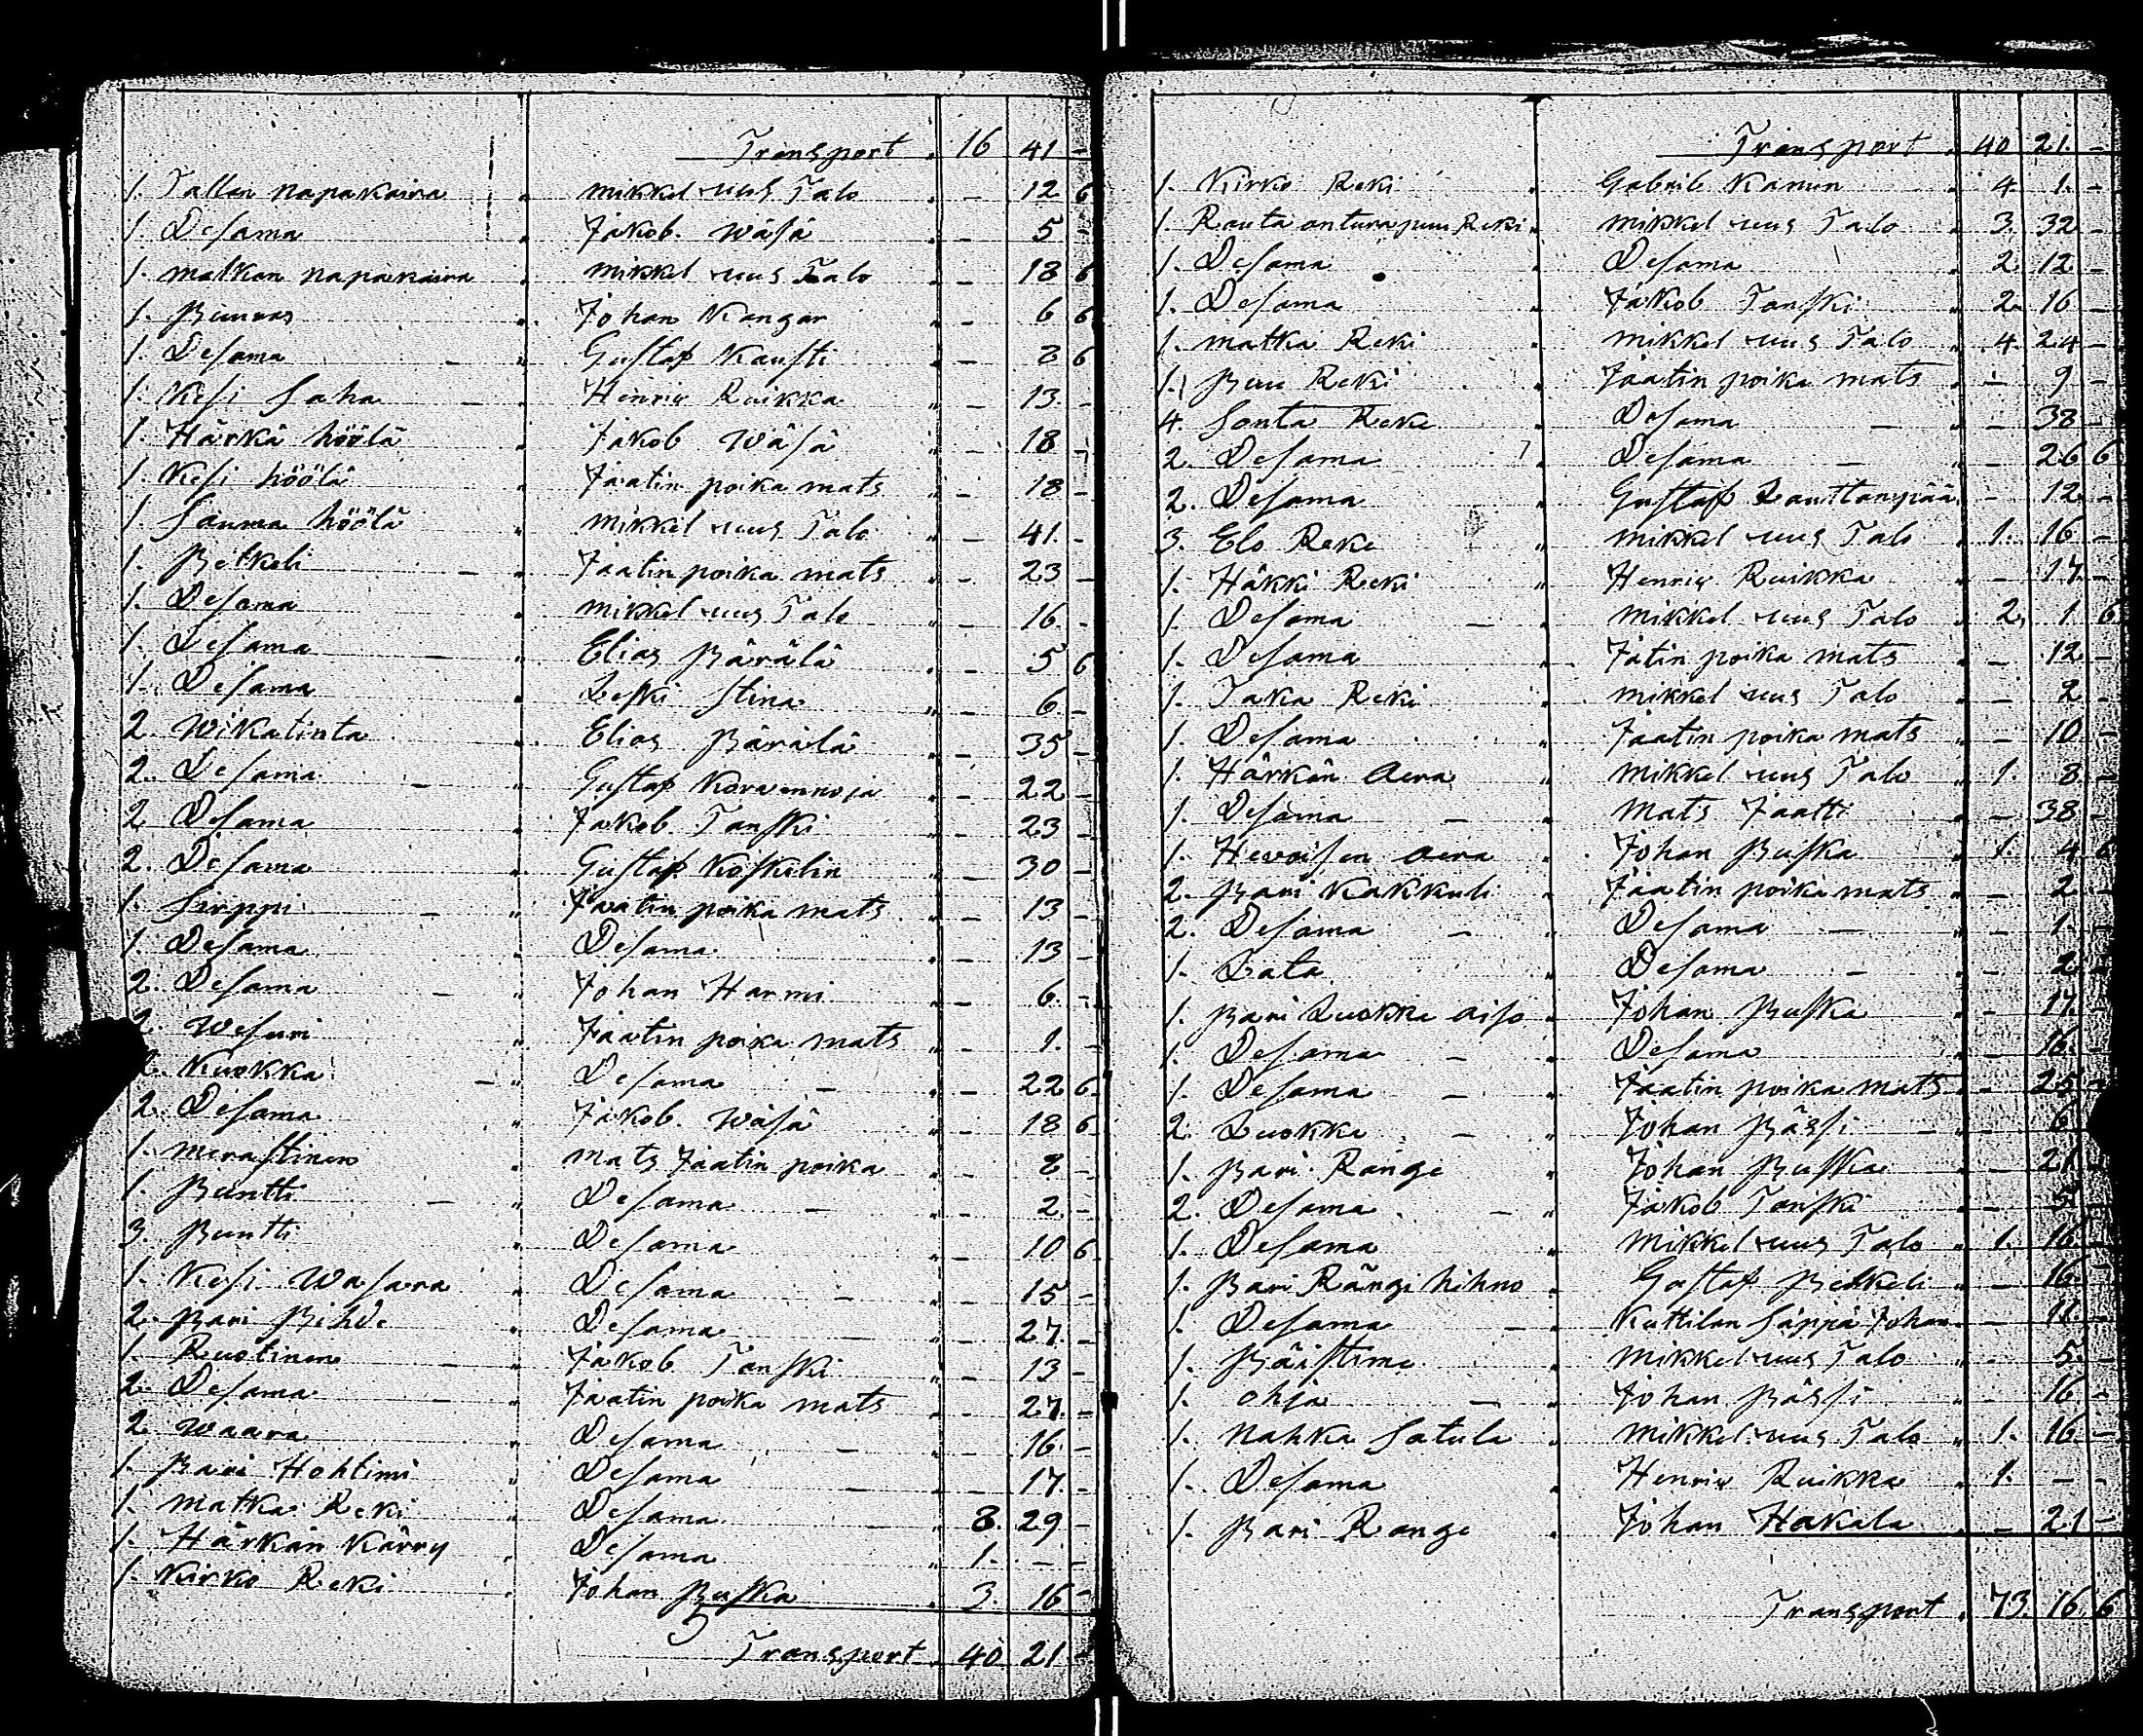 Transport . 16 41 -
1. Tallan napakaira " mikkel uus Talo . - 12 6
1. Desama " Jakob Wäsä . - 5 -
1. matkan napakaira . mikkel uus Talo . - 18 6
1. Buuras . Johan Kangar " - 6 6
1. Desama - " Gustaf Kausti - - 8 6
1. Kesi Saha - . Henric Ruikka " - 13 -
1. Härkä höölä . Jakob Wäsä . - 18 -
1. Kesi höölä . Jaatin poika mats " - 18 -
1. Sauma höölä " mikkel uus Talo " - 41. -
1. Betkeli - . Jaatin poika mats . - 23 -
1. Desama . mikkel uus Talo " - 16. -
1. Desama - " Elias Bärälä . - 5 6
1. Desama . Leski Stina " - 6. -
2 Wikatinta . Elias Bärälä . - 35 -
2. Desama - " Gustaf Koravennoja . - 22 -
2 Desama . Jakob Tanski . - 23 -
2. Desama . Gustaf Koskelin . - 30 -
1. Sirppi - " Jaatin poika mats . - 13 -
1. Desama . Desama . - 13 -
2. Desama - " Johan Harmi . - 6. -
2. Wesuri " Jaatin poika mats " - 1. -
2. Kuokka - " Desama - - 22 6.
2. Desama " Jakob Wäsä " - 18 6
1. merastinen . mats Jaatin poika . - 8 -
1. Buntti - " Desama - " - 2. -
3. Buntti . Desama . - 10 6
1. Kesi Wasara . Desama - . - 15 -
2. Bari Bihde " Desama . - 27. -
1. Ruotinen - " Jakob Tanski . - 13 -
2. Desama . Jaatin poika mats . - 27. -
2 Waara . Desama - - 16. -
1. Bari Hohtimi " Desama . - 17. -
1. matka Reki . Desama - " 8. 29 -
1. Härkän Kärry . Desama " 1. - -
1. Kirko Reki . Johan Buska . 3. 16 -
Transport . 40 21 -
Transport . 40 21. -
1. Kirko Reki . Gabrib Kanun . 4 1. -
1. Rauta anturapuu Reki . mikkel uus Talo . 3. 32 -
1. Desama . Desama . 2 12 -
1. Desama " Jakob Tanski . 2. 16 -
1. matka Reki . mikkel uus Talo " 4. 24 -
1. Buu Reki . Jaatin poika mats . - 9 -
4. Sonta Reke . Desama - - 38 -
2. Desama . Desama - " - 26 6
2. Desama . Gustaf Lauttanpää - 12 -
3. Elo Reke " mikkel uus Talo . 1. 16 -
1. Häkki Reki " Henric Ruikka " - 17. -
1. Desama - . mikkel uus Talo . 2. 1. 6
1. Desama . Jatin poika mats . - 12 -
1. Taka Reki . mikkel uus Talo . - 2 -
1. Desama " Jaatin poika mats " - 10 -
1. Härkän Aera " mikkel uus Talo . 1. 8 -
1. Desama - . mats Jaatti . - 38 -
1. Hevoisen aera . Johan Buska . 1. 4 6
2. Bari Kakkuli . Jaatin poika mats . - 2 -
2. Desama - " Desama - " - 1. -
1. Lata " Desama - . - 2 -
1. Bari Luokka aiso . Johan Buska . - 17. -
1. Desama - . Desama . - 16. -
1. Desama - " Jaatin poika mats . - 25 -
2. Luokka - " Johan Bässi - - 6 -
1. Bari Range . Johan Buska . - 21 -
2. Desama - " Jakob Tanski . - 5 -
1. Desama . mikkel uus Talo . 1. 16 -
1. Bari Rängi hihno . Gustaf Betkeli . - 16. -
1. Desama - . Kuttilan Säppä Johan . - 11. -
1. Bäistime . mikkel uus Talo " - 5. -
1. ohja - " Johan Bässi . - 16 -
1. Nahka Satula . mikkel uus Talo " 1. 16 -
1. Desama . Henric Ruikka . 1. - -
1. Bari Range . Johan Hakala . - 21 -
Transport . 73. 16 6